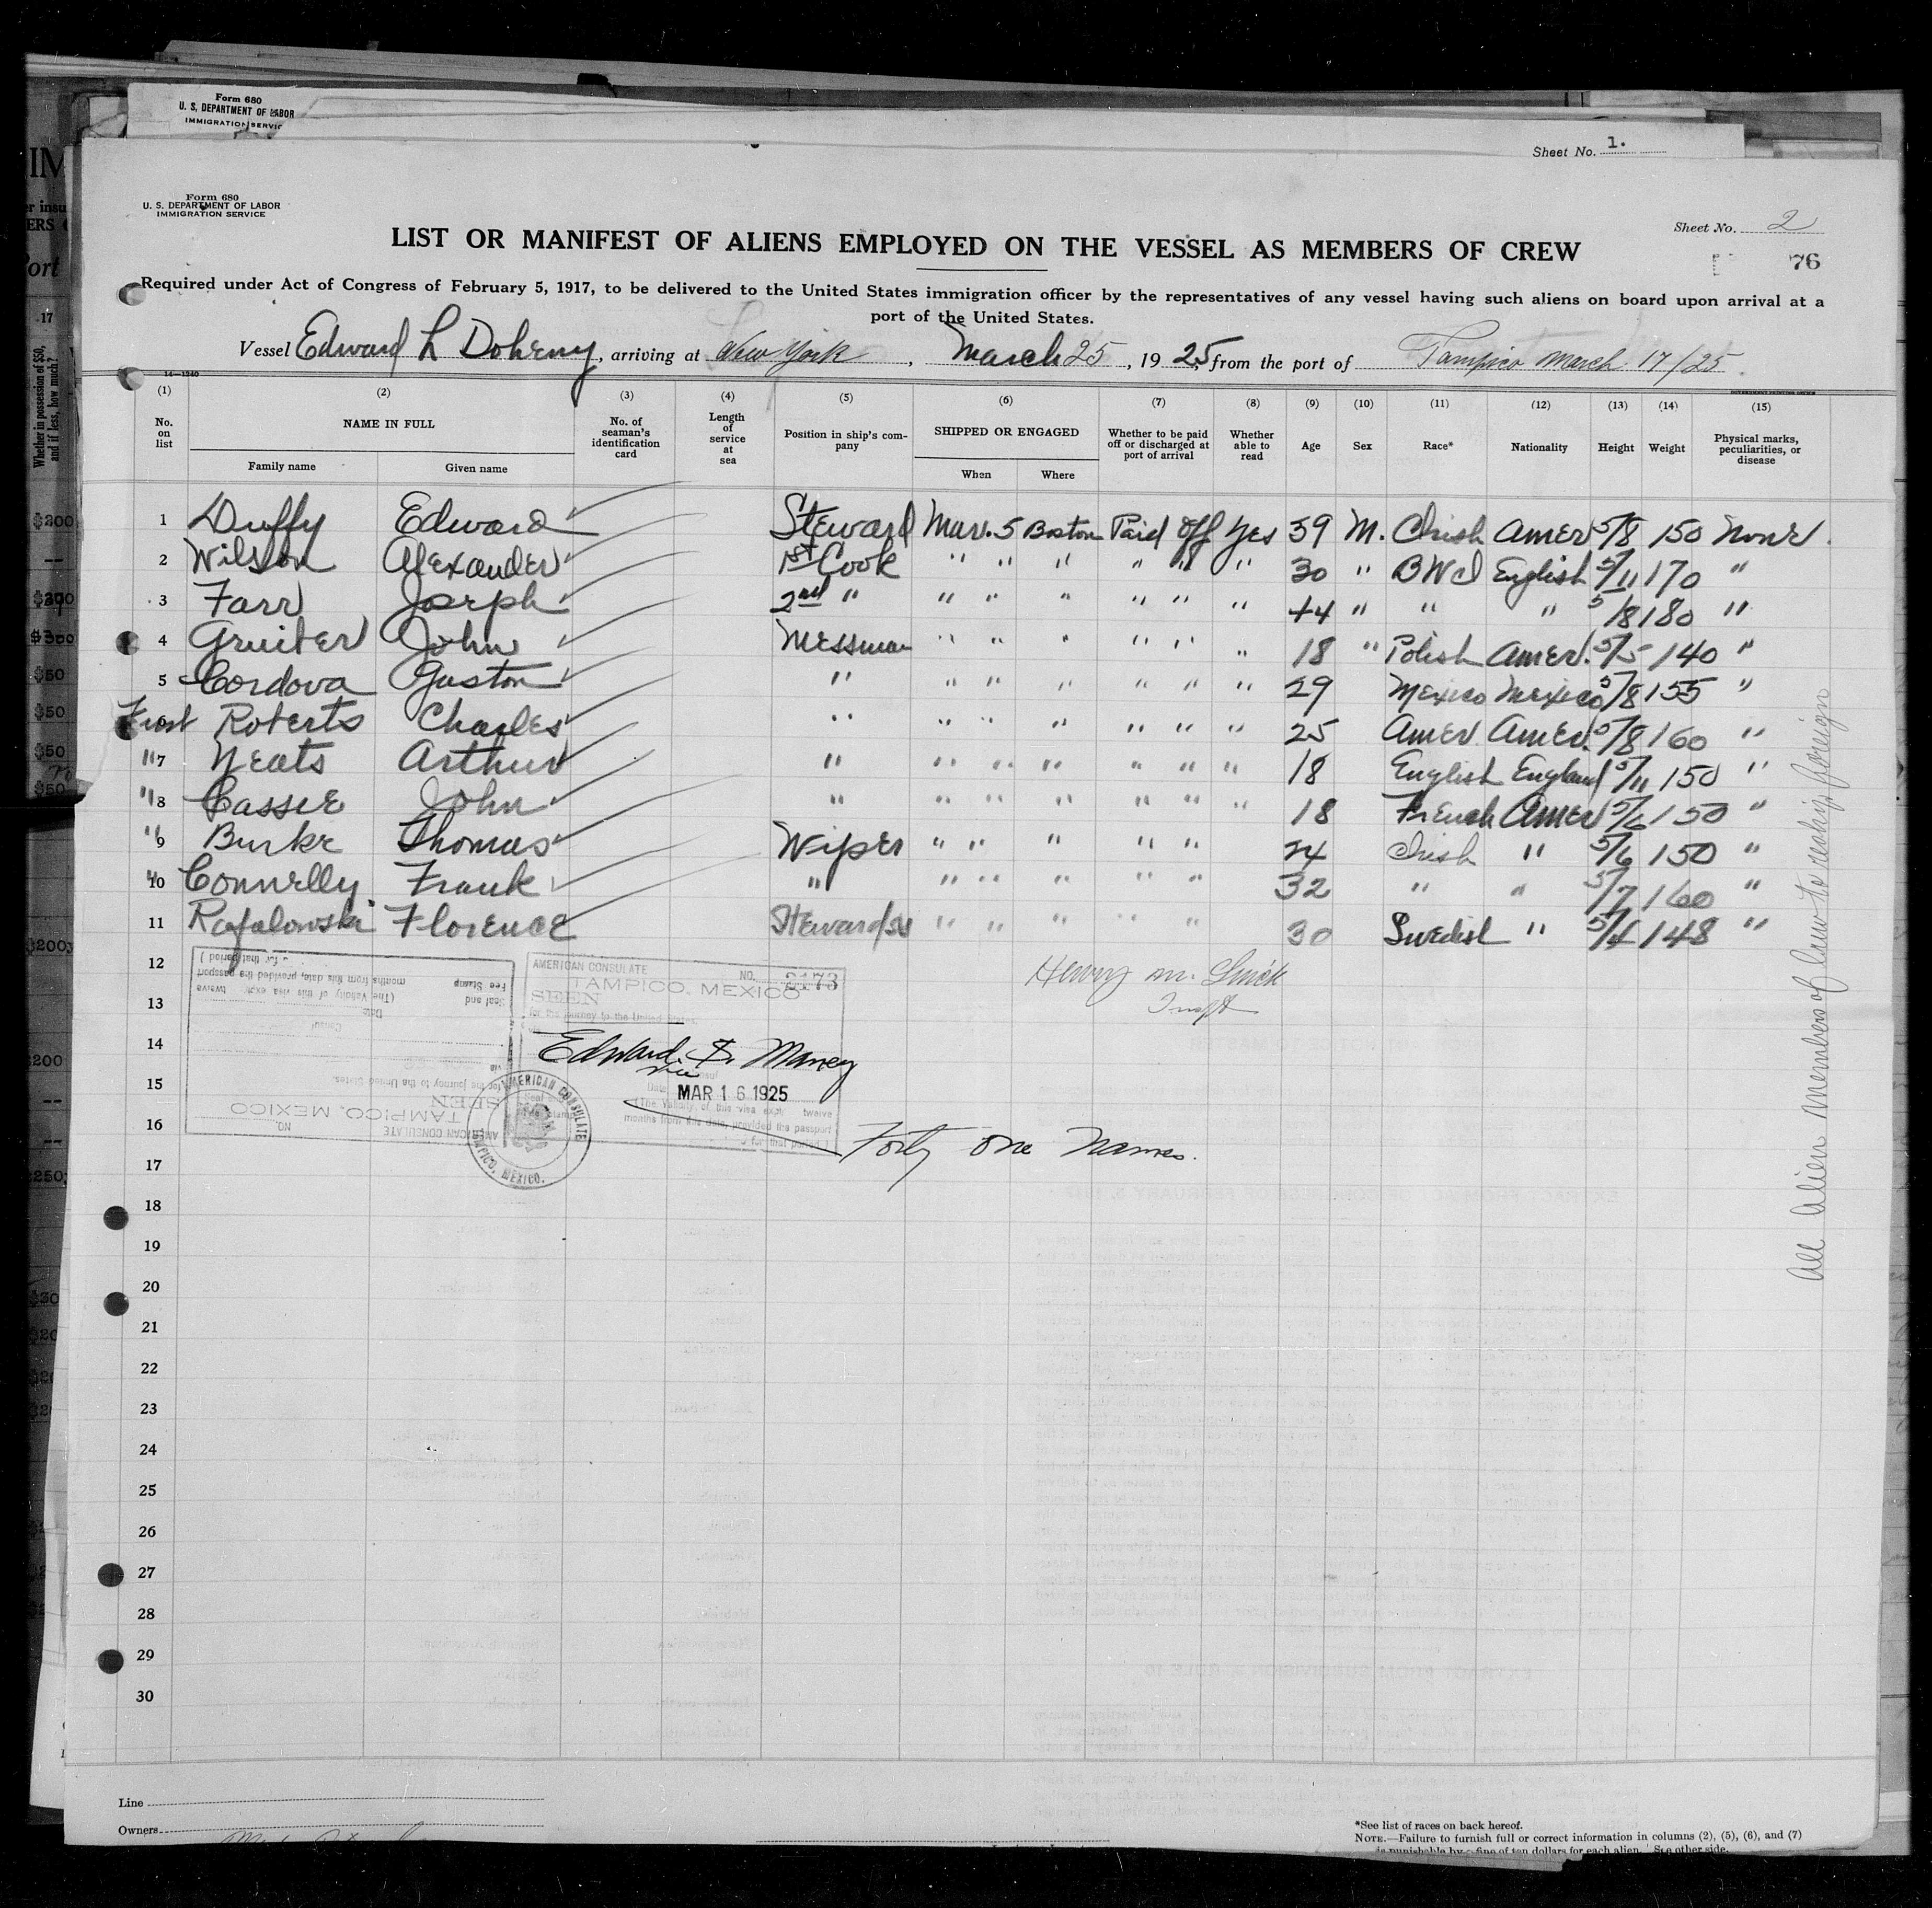 Form 680
U. S. DEPARTMENT OF LABOR
IMMIGRATION SERVIC
Sheet No. 1.
Form 680
U. S. DEPARTMENT OF LABOR
IMMIGRATION SERVICE
Sheet No. 2
LIST OR MANIFEST OF ALIENS EMPLOYED ON THE VESSEL AS MEMBERS OF CREW
76
Required under Act of Congress of February 5, 1917, to be delivered to the United States immigration officer by the representatives of any vessel having such aliens on board upon arrival at a
port of the United States.
Vessel Edward L Doheny, arriving at New York, March 25, 1925, from the port of Tampico March 17/25
14—1240
(1) (2) (3) (4) (5) (6) (7) (8) (9) (10) (11) (12) (13) (14) (15)
No. on list NAME IN FULL Family name Given name No. of seaman's identification card Length of service at sea Position in ship's company SHIPPED OR ENGAGED When Where Whether to be paid off or discharged at port of arrival Whether able to read Age Sex Race* Nationality Height Weight Physical marks, peculiarities, or disease
1 Duffy Edward Steward Mar. 5 Boston Paid Off Yes 39 M. Irish Amer 5/8 150 None.
2 Wilson Alexander 1st Cook " " " " " " 30 " BWI English 5/11 170 "
3 Farr Joseph 2nd " " " " " " " 44 " " " 5/8 180 "
4 Gruiter John Messman " " " " " " 18 " Polish Amer. 5/5 140 "
5 Cordova Gaston " " " " " " " 29 Mexico Mexico 5/8 155 "
First 6 Roberts Charles " " " " " " " 25 Amer Amer. 5/8 160 "
" 7 Neats Arthur " " " " " " " 18 English England 5/11 150 "
" 8 Cassie John " " " " " " " 18 French Amer 5/6 150 "
" 9 Burke Thomas Wiper " " " " " 24 Irish " 5/6 150 "
" 10 Connelly Frank " " " " " " 32 " " 5/7 160 "
11 Rafalowski Florence Stewardess " " " " " 30 Swedish " 5/4 148 "
12
13
14
15
16
17
18
19
20
21
22
23
24
25
26
27
28
29
30
AMERICAN CONSULATE NO. 2173
TAMPICO, MEXICO
SEEN
for the journey to the United States.
Edward S. Maney
Vice
MAR 16 1925
(The Validity of this visa expires twelve
months from this date, provided the passport
for that period)
AMERICAN CONSULATE
TAMPICO, MEXICO.
AMERICAN CONSULATE NO.
TAMPICO, MEXICO
SEEN
for the journey to the United States.
via
Consul
Date
Seal and
Fee Stamp
(The Validity of this visa expires twelve
months from this date, provided the passport
for that period)
Henry M.
Inspt
Forty one names.
All Alien Members of Crew to reship foreign
Line
Owners
*See list of races on back hereof.
NOTE.—Failure to furnish full or correct information in columns (2), (5), (6), and (7)
is punishable by fine of ten dollars for each alien. See other side.